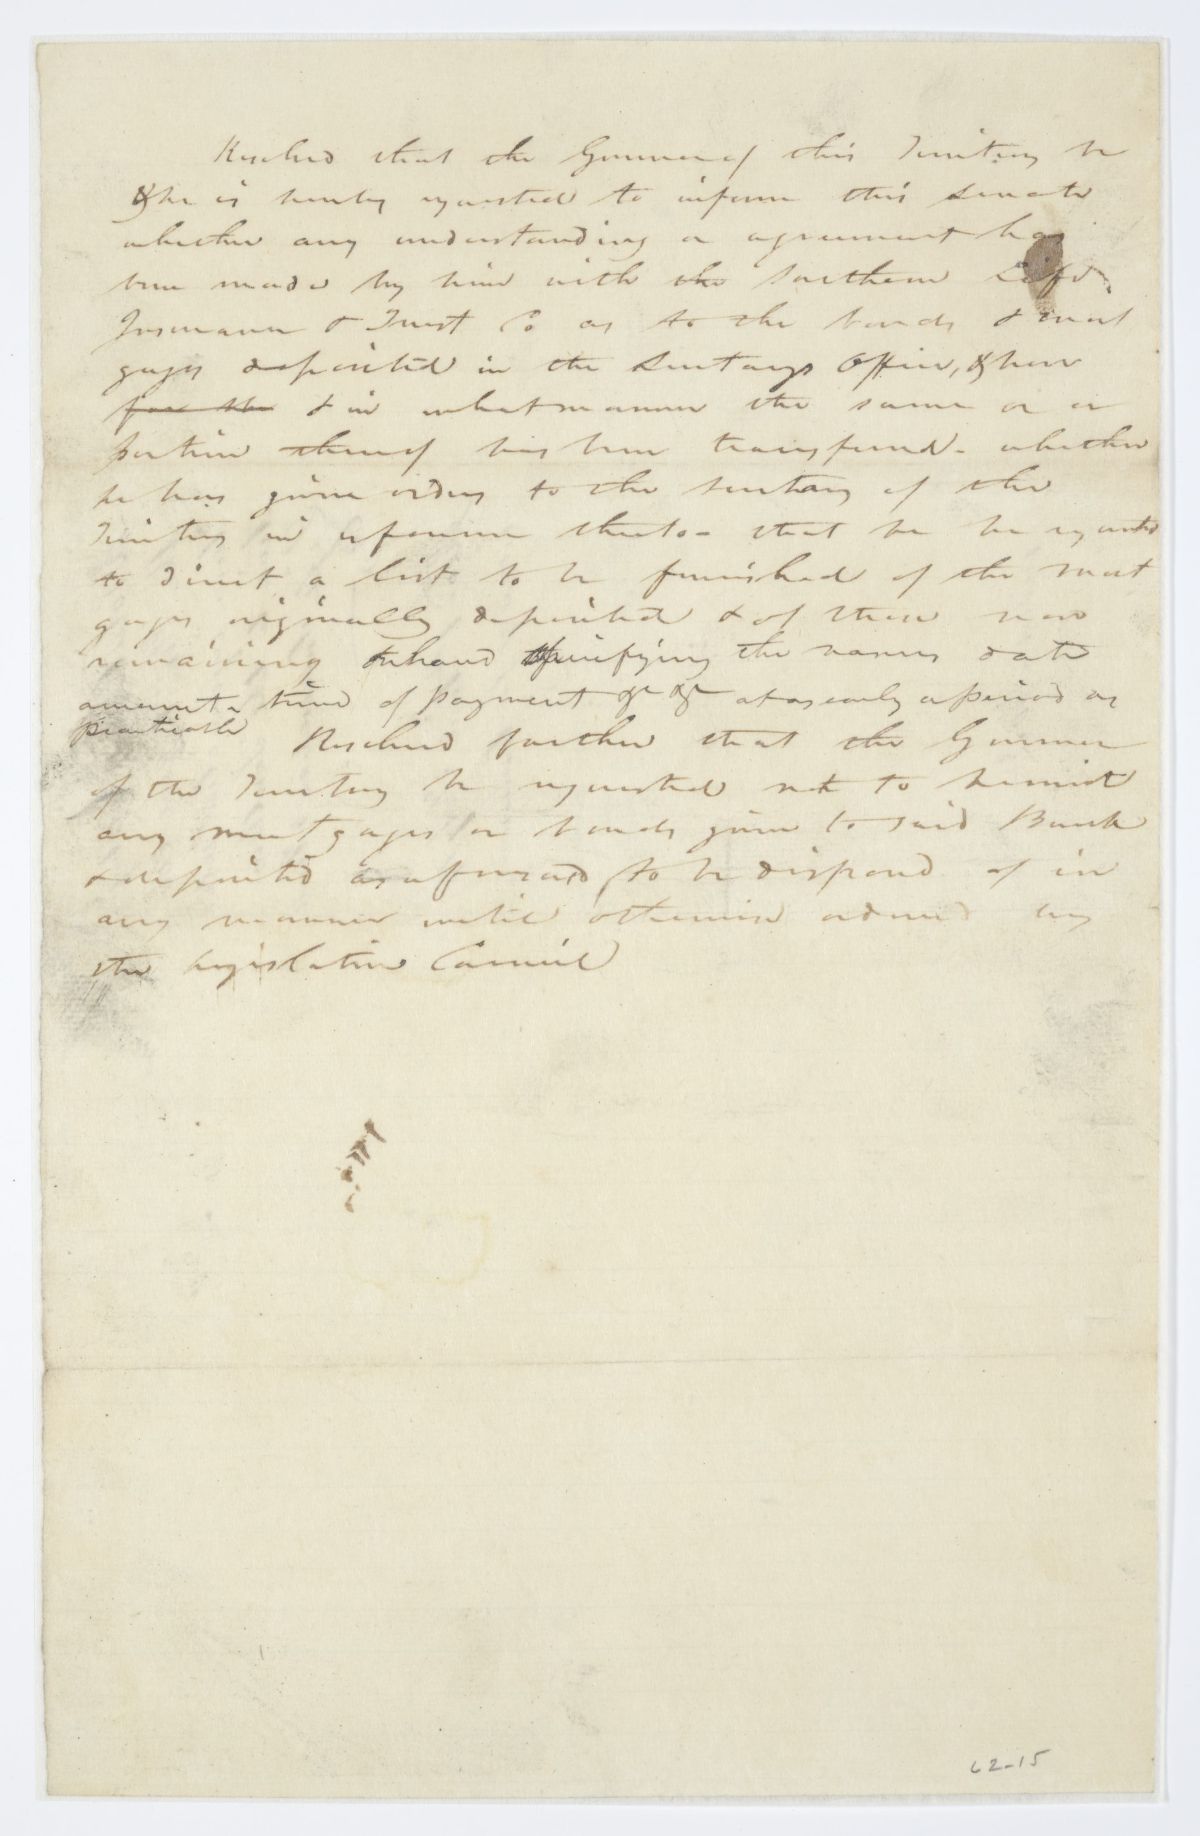 Resolved that the Governor of this Territory be
& he is hereby requested to inform this Senate
whether any understanding or agreement has
been made by him with the Southern Life
Insurance & Trust Co as to the bonds & mort
gages deposited in the Secretarys Office, & how
for the & in what manner the same or a
portion thereof has been transferred - whether
he has given orders to the Secretary of the
Territory in reference thereto - that he be requested
to direct a list to be furnished of the mort
gages originally deposited & of those now
remaining on hand specifying the names date
amount & time of payment &c &c at as early a period as
practicable
Resolved further that the Governor
of the Territory be requested not to permit
any mortgages or bonds given to said Bank
& deposited as aforesaid to be disposed of in
any manner until otherwise ordered by
the Legislative Council
62-15